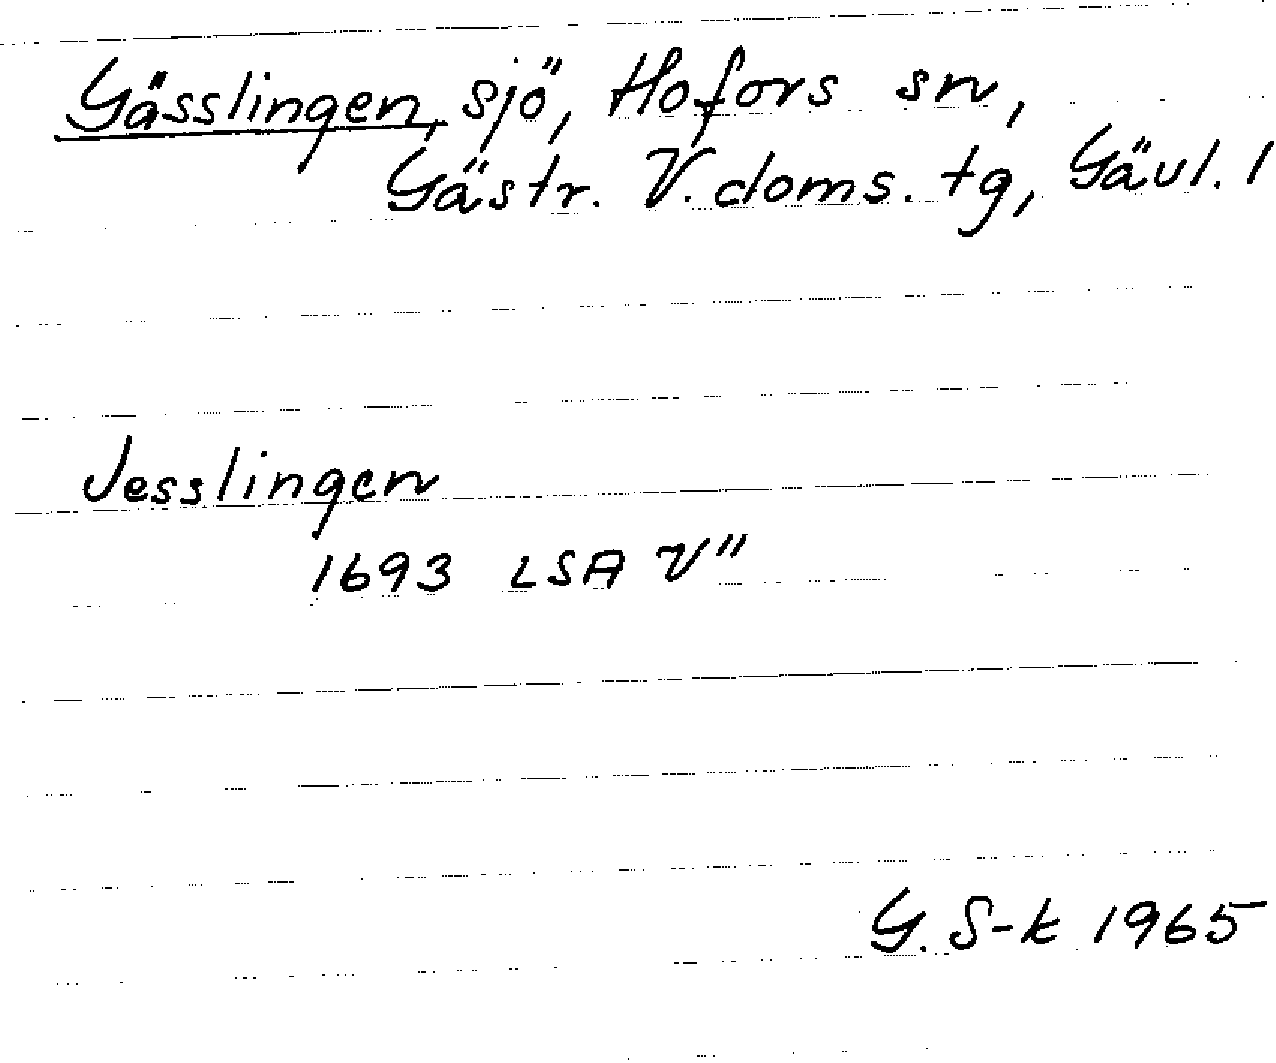 Gässlingen, sjö, Hofors sn,
Gästr. V. doms. tg, Gävl. l
Jesslingen
1693 LSA V"
G. S-k 1965